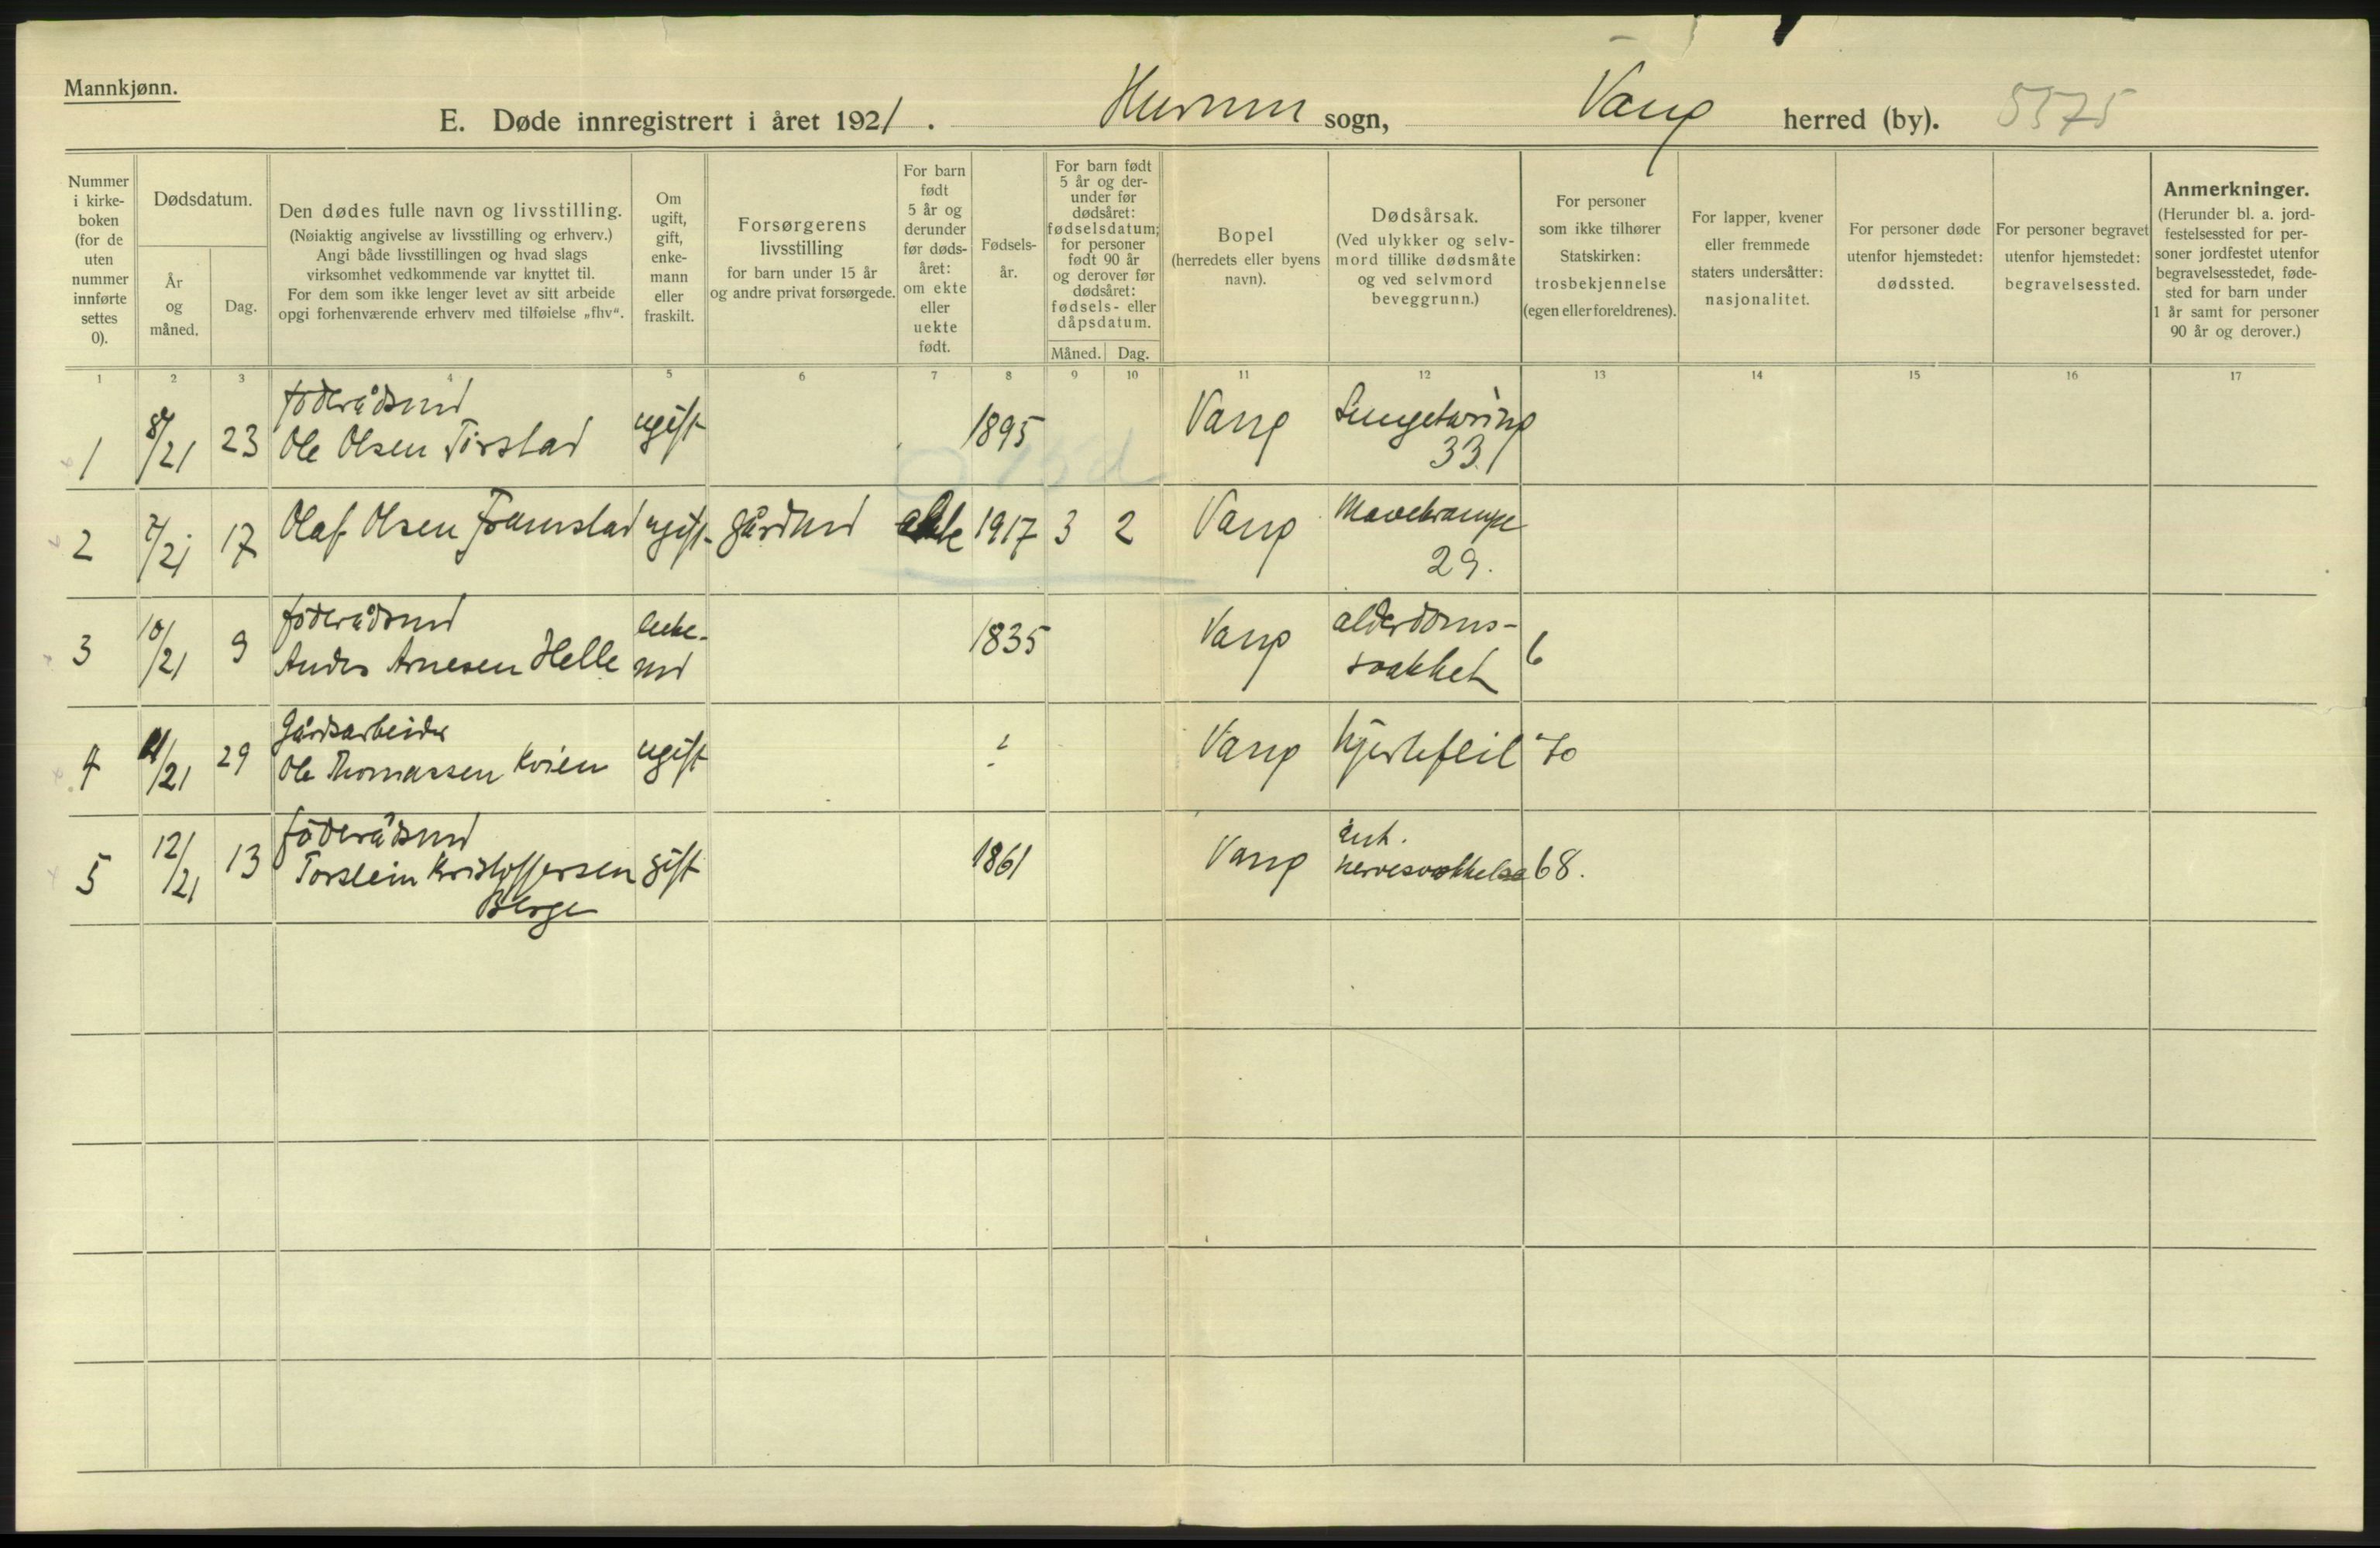 Mannkjønn.
E. Døde innregistrert i året 1921. Hurum sogn, Vang herred (by). 5575
Nummer i kirke- boken (for de uten nummer innførte settes 0).
Dødsdatum.
År og måned.
Dag.
Den dødes fulle navn og livsstilling.
(Nøiaktig angivelse av livsstilling og erhverv.)
Angi både livsstillingen og hvad slags
virksomhet vedkommende var knyttet til.
For dem som ikke lenger levet av sitt arbeide
opgi forhenværende erhverv med tilføielse „fhv“.
Om ugift, gift, enke- mann eller fraskilt.
Forsørgerens livsstilling
for barn under 15 år
og andre privat forsørgede.
For barn født 5 år og derunder før døds- året: om ekte eller uekte født.
Fødsels- år.
For barn født 5 år og der- under før dødsåret: fødselsdatum; for personer født 90 år og derover før dødsåret: fødsels- eller dåpsdatum.
Måned. Dag.
Bopel
(herredets eller byens navn).
Dødsårsak.
(Ved ulykker og selv-
mord tillike dødsmåte
og ved selvmord
beveggrunn.)
For personer som ikke tilhører Statskirken: trosbekjennelse (egen eller foreldrenes).
For lapper, kvener eller fremmede staters undersåtter: nasjonalitet.
For personer døde utenfor hjemstedet: dødssted.
For personer begravet utenfor hjemstedet: begravelsessted.
Anmerkninger.
(Herunder bl. a. jord-
festelsessted for per-
soner jordfestet utenfor
begravelsesstedet, føde-
sted for barn under
1 år samt for personer
90 år og derover.)
1 2 3 4 5 6 7 8 9 10 11 12 13 14 15 16 17
føderådsmd
1 8/21 23 Ole Olsen Tørstad ugift 1895 Vang Lungetæring
33
2 7/21 17 Olaf Olsen Framstad ugift gårdmd ekte 1917 3 2 Vang Mavekrampe
29.
føderådsmd enke- alderdoms-
3 10/21 9 Anders Arnesen Helle md 1835 Vang svakhet 6
Gårdsarbeider
4 11/21 29 Ole Thomassen Kvien ugift ? Vang hjertefeil 70
føderådsmd
5 12/21 13 Torstein Kristoffersen gift 1861 Vang nervesvekkelse 68.
Berge